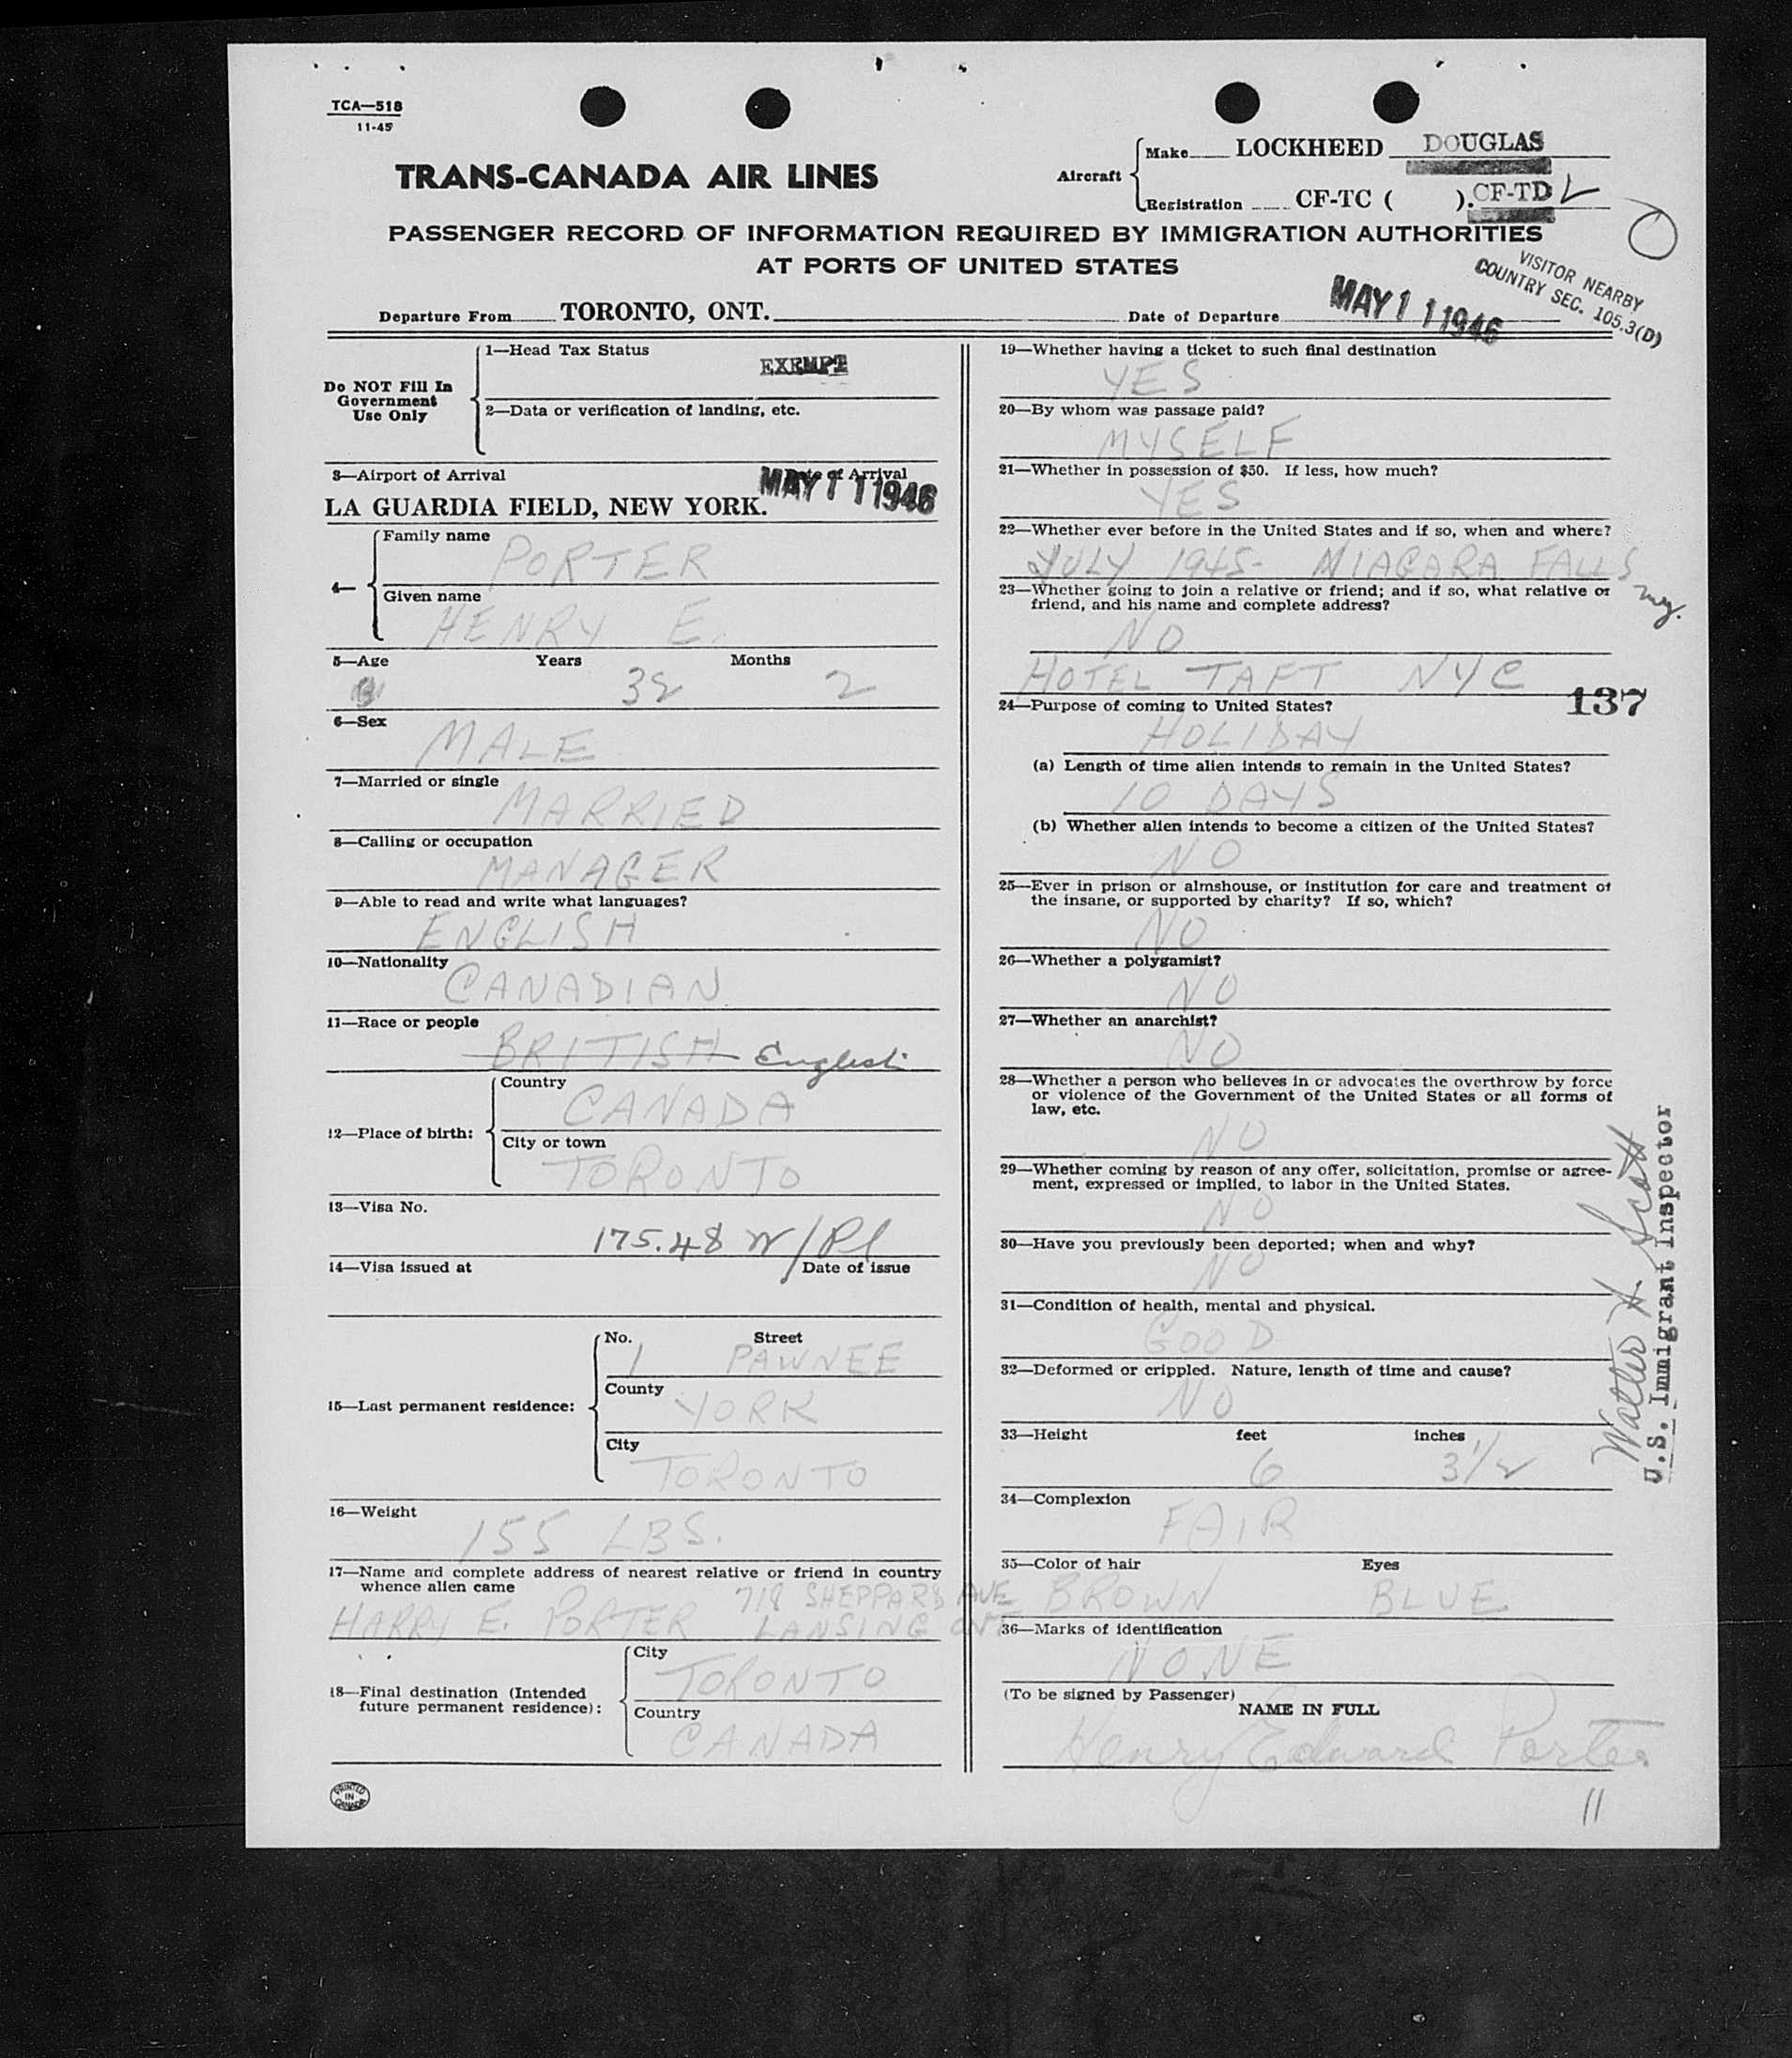 TCA—518
11-45
TRANS-CANADA AIR LINES
Aircraft
Make LOCKHEED DOUGLAS
Registration CF-TC ( ). CF-TD L
PASSENGER RECORD OF INFORMATION REQUIRED BY IMMIGRATION AUTHORITIES
AT PORTS OF UNITED STATES
VISITOR NEARBY
COUNTRY SEC. 105.3(D)
Departure From TORONTO, ONT. Date of Departure MAY 11 1946
Do NOT Fill In
Government
Use Only
1—Head Tax Status
EXEMPT
2—Data or verification of landing, etc.
3—Airport of Arrival Date of Arrival
LA GUARDIA FIELD, NEW YORK. MAY 11 1946
4—
Family name
PORTER
Given name
HENRY E.
5—Age Years Months
32 2
6—Sex
MALE
7—Married or single
MARRIED
8—Calling or occupation
MANAGER
9—Able to read and write what languages?
ENGLISH
10—Nationality
CANADIAN
11—Race or people
BRITISH English
12—Place of birth:
Country
CANADA
City or town
TORONTO
13—Visa No.
175.48 W/Pl
14—Visa issued at Date of issue
15—Last permanent residence:
No. Street
1 PAWNEE
County
YORK
City
TORONTO
16—Weight
155 LBS.
17—Name and complete address of nearest relative or friend in country
whence alien came
718 SHEPPARD AVE
HARRY E. PORTER LANSING ONT
18—Final destination (Intended
future permanent residence):
City
TORONTO
Country
CANADA
PRINTED
IN
CANADA
19—Whether having a ticket to such final destination
YES
20—By whom was passage paid?
MYSELF
21—Whether in possession of $50. If less, how much?
YES
22—Whether ever before in the United States and if so, when and where?
JULY 1945- NIAGARA FALLS
ny.
23—Whether going to join a relative or friend; and if so, what relative or
friend, and his name and complete address?
NO
HOTEL TAFT NYC
137
24—Purpose of coming to United States?
HOLIDAY
(a) Length of time alien intends to remain in the United States?
10 DAYS
(b) Whether alien intends to become a citizen of the United States?
NO
25—Ever in prison or almshouse, or institution for care and treatment of
the insane, or supported by charity? If so, which?
NO
26—Whether a polygamist?
NO
27—Whether an anarchist?
NO
28—Whether a person who believes in or advocates the overthrow by force
or violence of the Government of the United States or all forms of
law, etc.
NO
29—Whether coming by reason of any offer, solicitation, promise or agree-
ment, expressed or implied, to labor in the United States.
NO
30—Have you previously been deported; when and why?
NO
31—Condition of health, mental and physical.
GOOD
32—Deformed or crippled. Nature, length of time and cause?
NO
33—Height feet inches
6 3 1/2
34—Complexion
FAIR
35—Color of hair Eyes
BROWN BLUE
36—Marks of identification
NONE
(To be signed by Passenger)
NAME IN FULL
Henry Edward Porter
11
Walter H. Scott
U.S. Immigrant Inspector